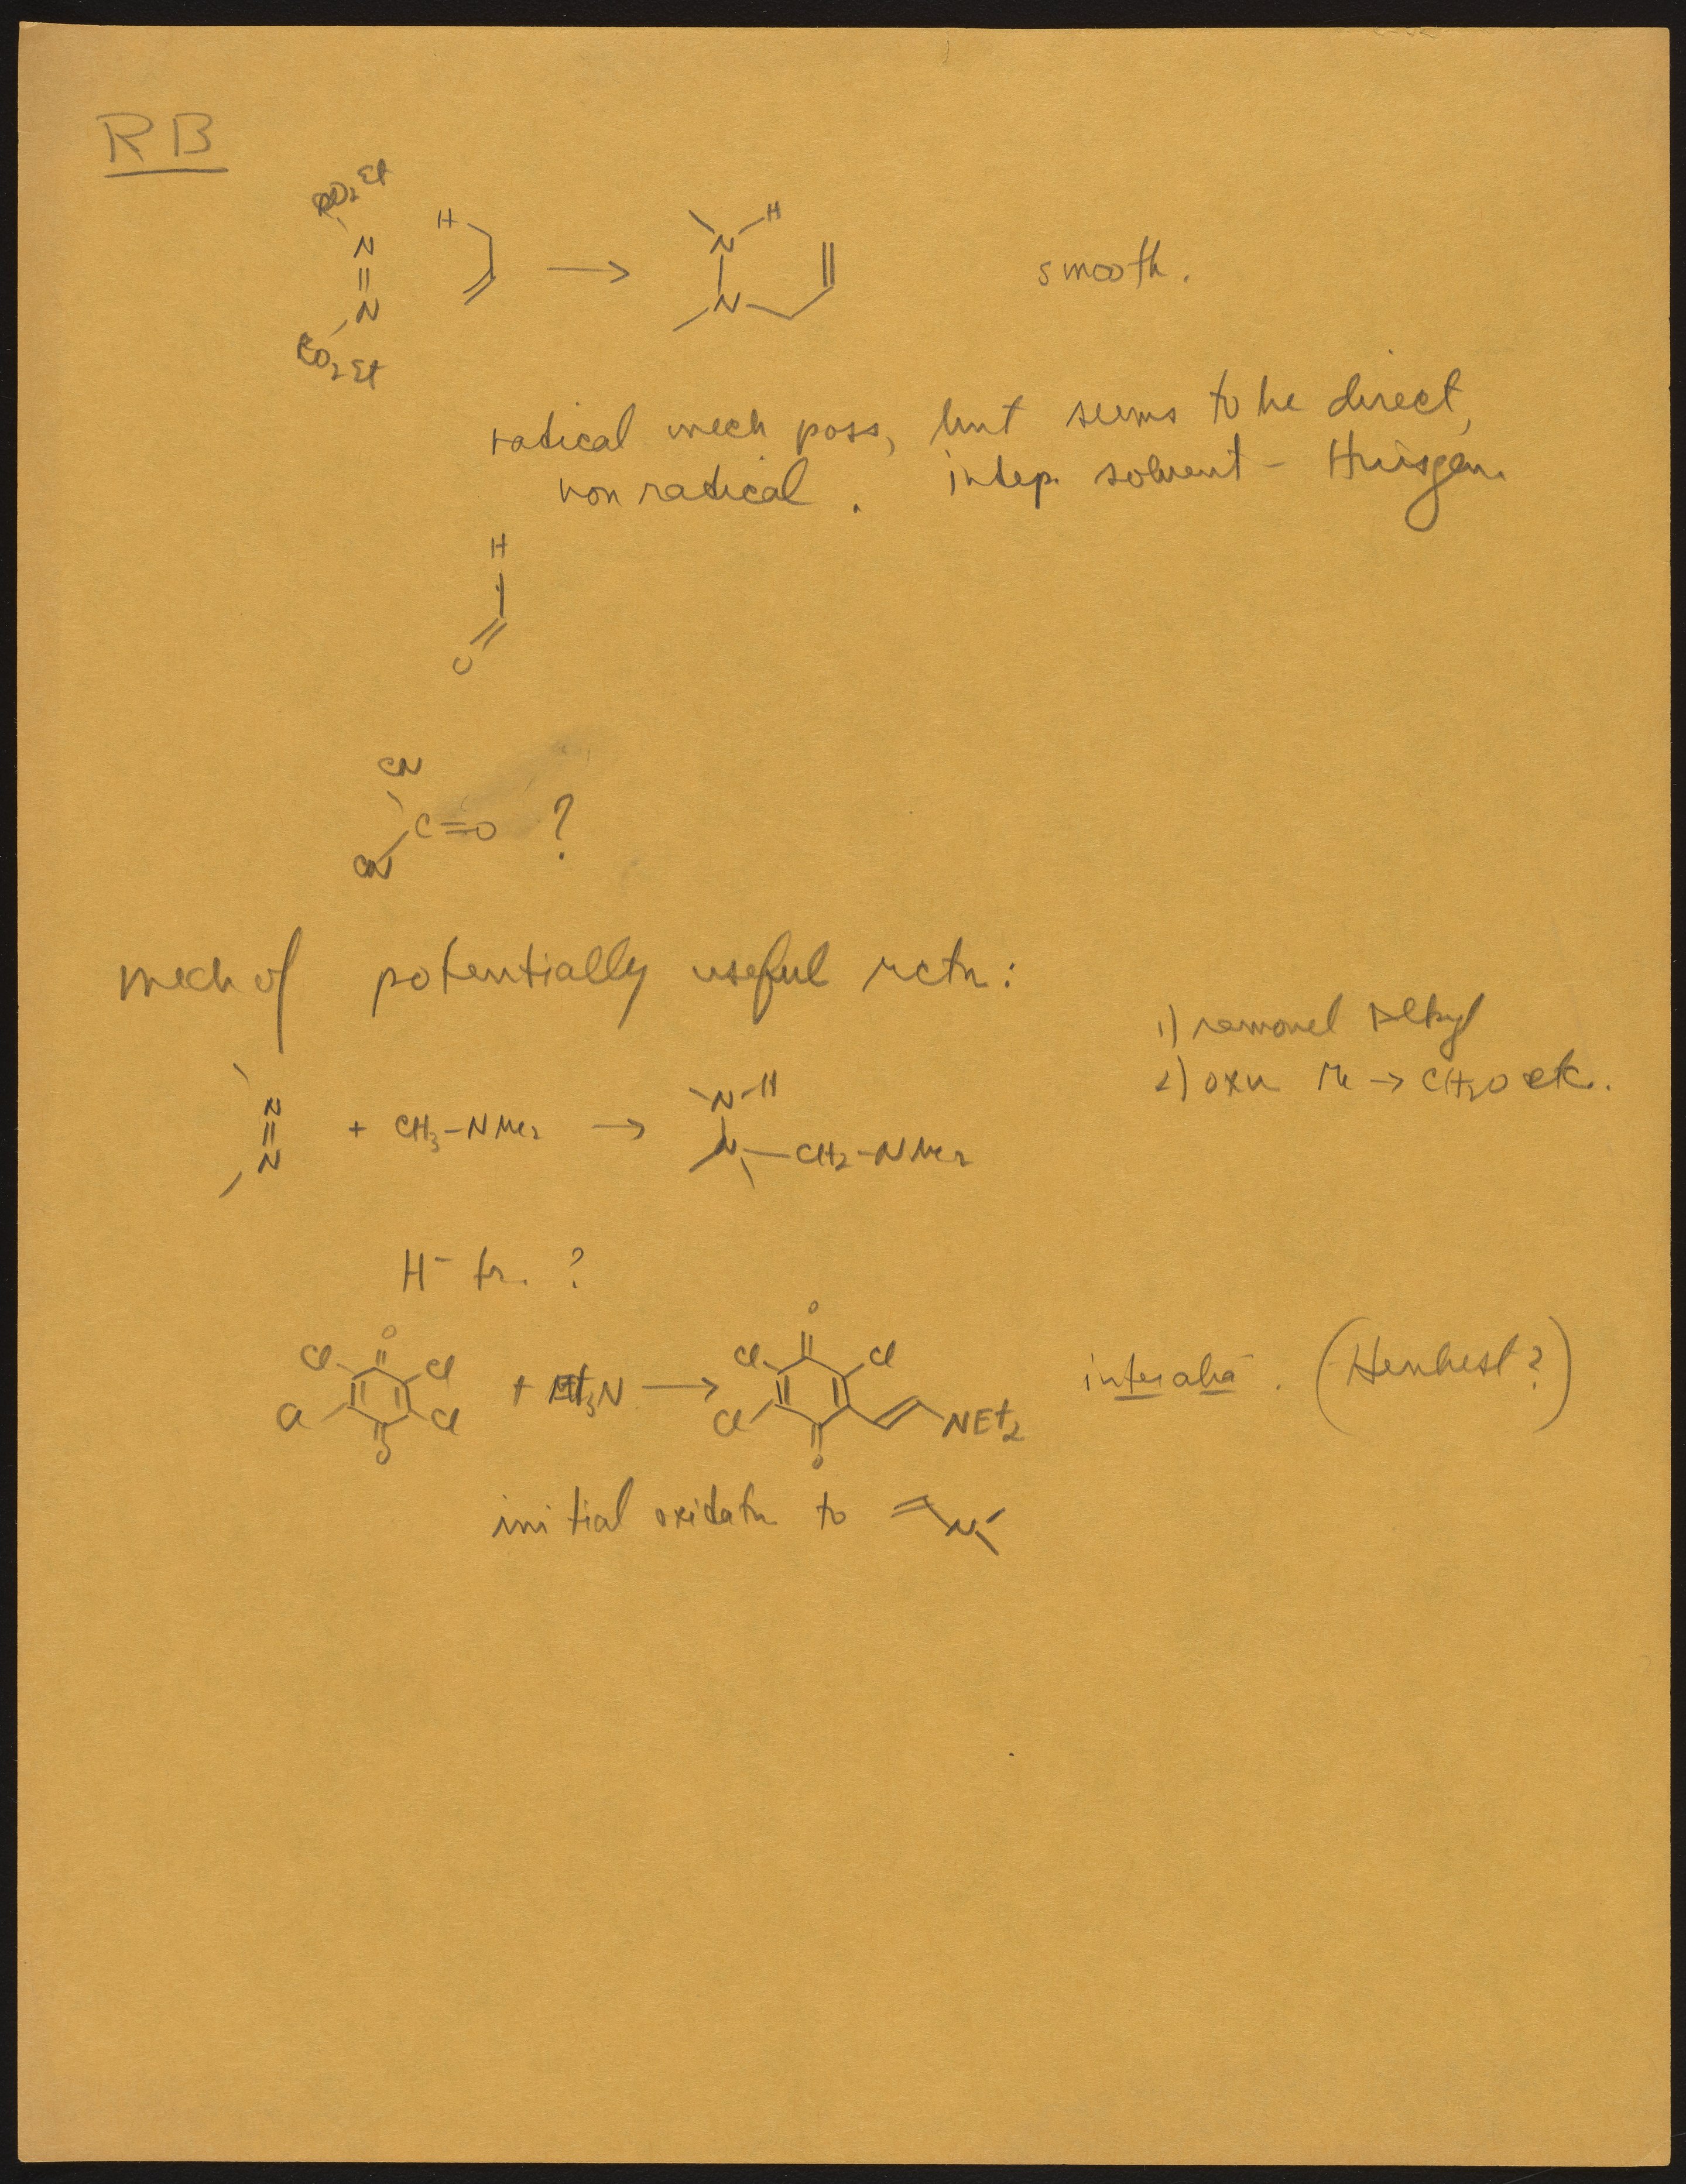 RB
CO₂Et
N
N
CO₂Et
H
→
N
H
N
smooth.
radical mech poss, but seems to be direct,
non radical. indep. solvent - Huisgen.
H
O
CN
C=O ?
CN
mech of potentially useful rctn:
1) removal Alkyl
2) oxn Me → CH₂O etc.
N
N
+ CH₃-NMe₂ →
N-H
N-CH₂-NMe₂
H⁻ tr. ?
O
Cl
Cl
Cl
Cl
O
+ Et₃N →
O
Cl
Cl
Cl
O
NEt₂
inter alia. (Henbest?)
initial oxidatn to
N